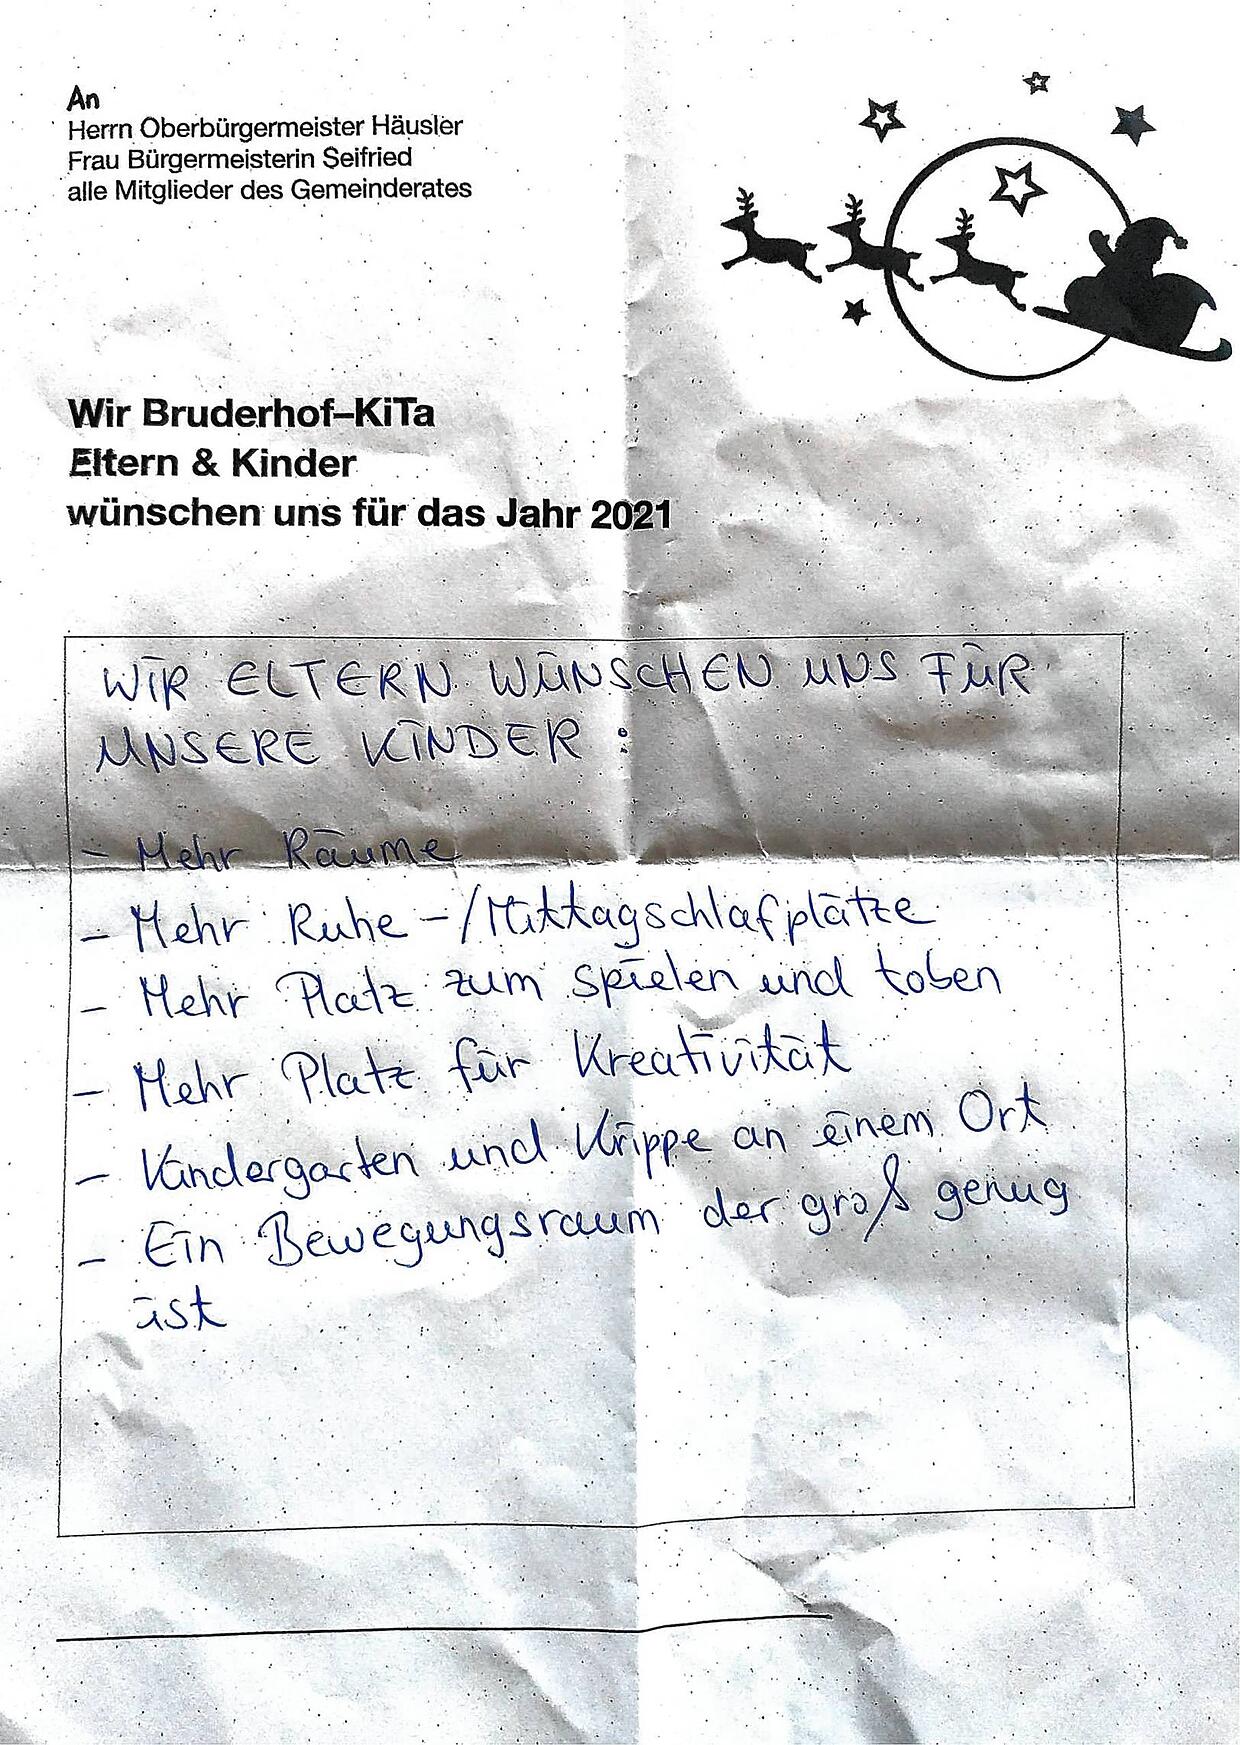 An
Herrn Oberbürgermeister Häusler
Frau Bürgermeisterin Seifried
alle Mitglieder des Gemeinderates
Wir Bruderhof–KiTa
Eltern & Kinder
wünschen uns für das Jahr 2021
WIR ELTERN WÜNSCHEN UNS FÜR
UNSERE KINDER :
- Mehr Räume
- Mehr Ruhe-/Mittagschlafplätze
- Mehr Platz zum spielen und toben
- Mehr Platz für Kreativität
- Kindergarten und Krippe an einem Ort
- Ein Bewegungsraum der groß genug
ist